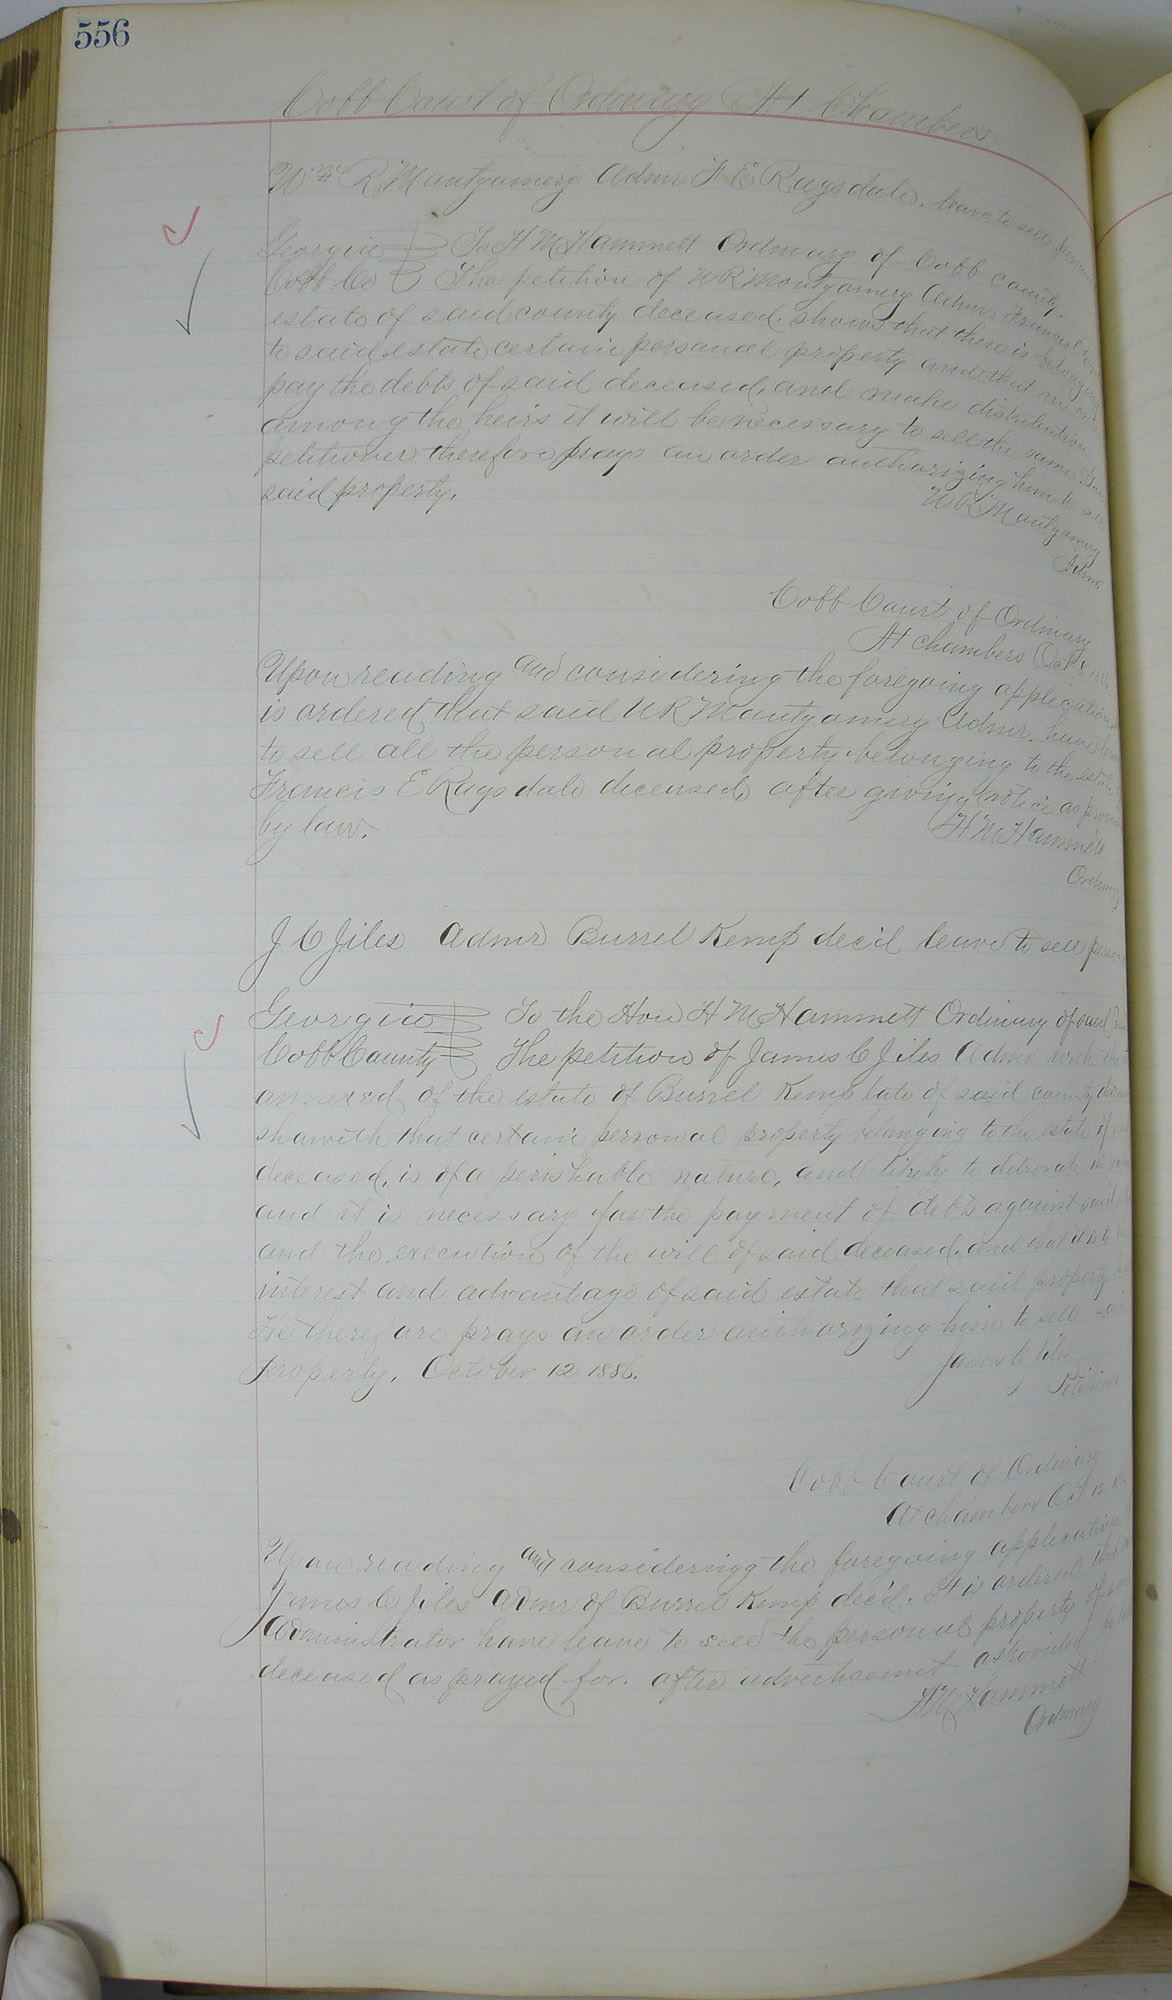 556
Cobb Court of Ordinary At Chambers
Wm R Montgomery Admr F. E Ragsdale. leave to sell
Georgia To H M Hammett Ordinary of Cobb county.
Cobb Co The petition of W R Montgomery Admr Francis E
estate of said county deceased shows that there is belonging
to said estate certain personal property and that in order
pay the debts of said deceased, and make distribution
among the heirs it will be necessary to sell the same. Your
petitioner therefore prays an order authorizing him to sell
said property.
W R Montgomery
Admr.
Cobb Court of Ordinary
At chambers Oct
Upon reading and considering the foregoing application
is ordered that said W R Montgomery Admr. have
to sell all the personal property belonging to the estate
Francis E Ragsdale deceased, after giving notice as
by law.
H M Hammett
Ordinary
J C Jiles Admr Burrel Kemp dec'd leave to sell
Georgia To the Hon H M Hammett Ordinary of said
Cobb County The petition of James C Jiles Admr with the
annexed of the estate of Burrel Kemp late of said county
showeth that certain personal property belonging to the estate of
deceased, is of a perishable nature, and likely to
and it is necessary for the payment of debts against said
and the execution of the will of said deceased. and that it is to the
interest and advantage of said estate that said property
He therefore prays an order authorizing him to sell said
property. October 12 1886.
James C Jiles
Petitioner
Cobb Court of Ordinary
At chambers Oct 12
Upon reading and considering the foregoing application
James C Jiles Admr of Burrel Kemp dec'd. It is ordered that
Administrator have leave to sell the personal property of
deceased as prayed for. after advertisement as provided
H M Hammett
Ordinary